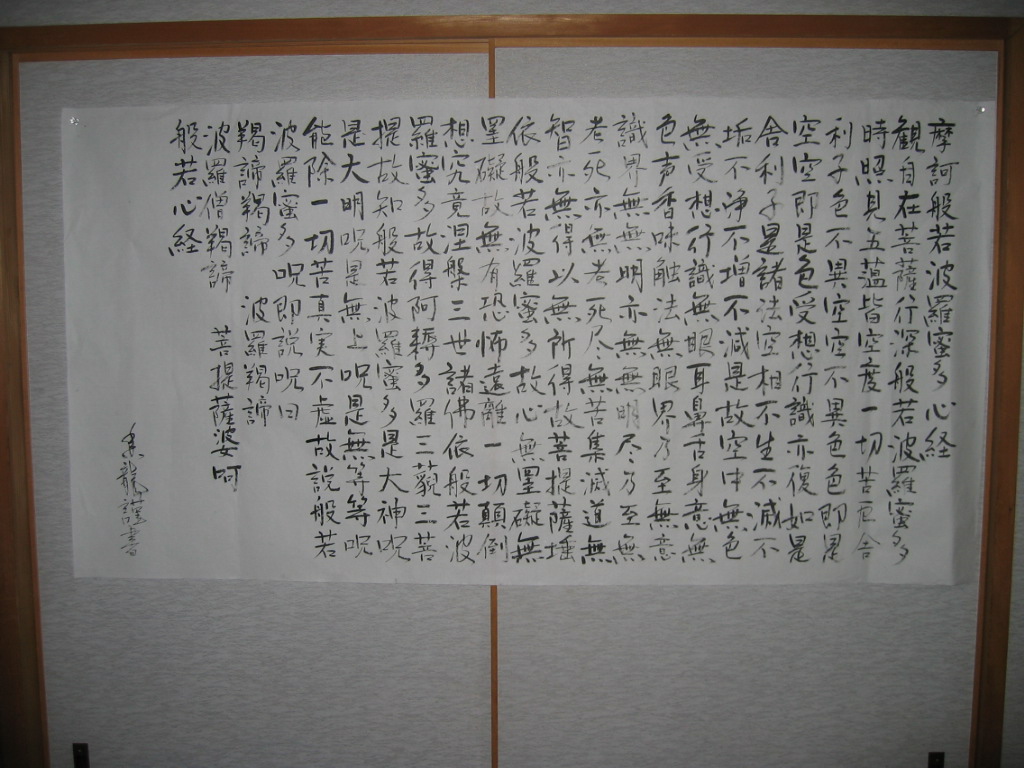 摩訶般若波羅蜜多心経
観自在菩薩行深般若波羅蜜多
時照見五蘊皆空度一切苦厄舎
利子色不異空空不異色色即是
空空即是色受想行識亦復如是
舎利子是諸法空相不生不滅不
垢不浄不増不減是故空中無色
無受想行識無眼耳鼻舌身意無
色声香味触法無眼界乃至無意
識界無無明亦無無明尽乃至無
老死亦無老死尽無苦集滅道無
智亦無得以無所得故菩提薩埵
依般若波羅蜜多故心無罣礙無
罣礙故無有恐怖遠離一切顛倒
想究竟涅槃三世諸佛依般若波
羅蜜多故得阿耨多羅三藐三菩
提故知般若波羅蜜多是大神呪
是大明呪是無上呪是無等等呪
能除一切苦真実不虚故説般若
波羅蜜多呪即説呪曰
羯諦羯諦 波羅羯諦
波羅僧羯諦 菩提薩婆呵
般若心経
龍謹書